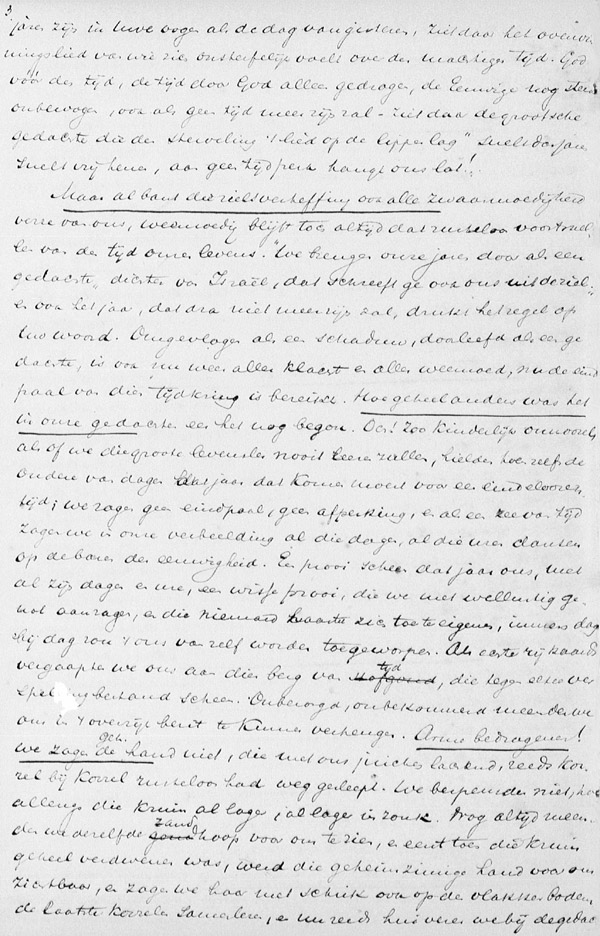 3
jaren zijn in Uwe oogen als de dag van gisteren, ziet daar het overwin
ningslied van wie zien onsterfelijk voelt over den machtigen tijd. God
vóór den tijd, de tijd door God alleen gedragen, de Eeuwige nog steeds
onbewogen, ook als geen tijd meer zijn zal - ziet daar de grootsche
gedachte die den sterveling 't lied op de lippen lag " Snelt dan jaren
snelt vrij henen, aan geen tijdperk hangt ons lot!
Maar al bant die zielsverheffing ook alle zwaarmoedigheid
verre van ons, weemoedig blijft toch altijd dat rusteloos voortsnel
len van den tijd onzes levens. "We brengen onze jaren door als een
gedachte, dichter van Israël, dat schreeft ge ook ons uit de ziel"
en ook het jaar, dat dra niet meer zijn zal, drukt het zegel op
Uw woord. Omgevlogen als een schaduw, doorleefd als een ge
dachte, is ook nu weer alles klacht en alles weemoed, nu de eind
paal van dien tijdkring is bereikt. Hoe geheel anders was het
in onze gedachten eer het nog begon. Och! Zoo kinderlijk onnoozel
als of we die groote levensles nooit leeren zullen, hielden hoe zelfs de
ouderen van dagen dat jaar dat komen moest voor een eindeloozen
tijd; we zagen geen eindpaal, geen afperking, en als een zee van tijd
zagen we in onze verbeelding al die dagen, al die uren dansen
op de baren der eeuwigheid. Een prooi scheen dat jaar ons, met
al zijn dagen en uren, een wisse prooi, die we met wellustig ge
not aanzagen, en die niemand haastte zich toe te eigenen, immers dag
bij dag zou 't ons van zelf worden toegeworpen. Als echte rijkaards
vergaapten we ons aan dien berg van tijd, die tegen elke ver
spilling bestand scheen. Onbezorgd, onbekommerd meenden we
ons in 't overrijk bezit te kunnen verheugen. Arme bedrogenen!
We zagen de geh. hand niet, die met ons juichen lachend, reeds kor
rel bij korrel rusteloos had weg gesleept. We bespeurden niet, hoe
allengs die kruin al lager, al lager in zonk. Nog altijd meen
den we denzelfde zandhoop voor ons te zien, en eerst toen die kruin
geheel verdwenen was, werd die geheimzinnige hand voor ons
zichtbaar, en zagen we haar met schrik ook op de vlakken bodem
de laatste korrels samenlezen, en nu reeds huiveren we bij de gedach